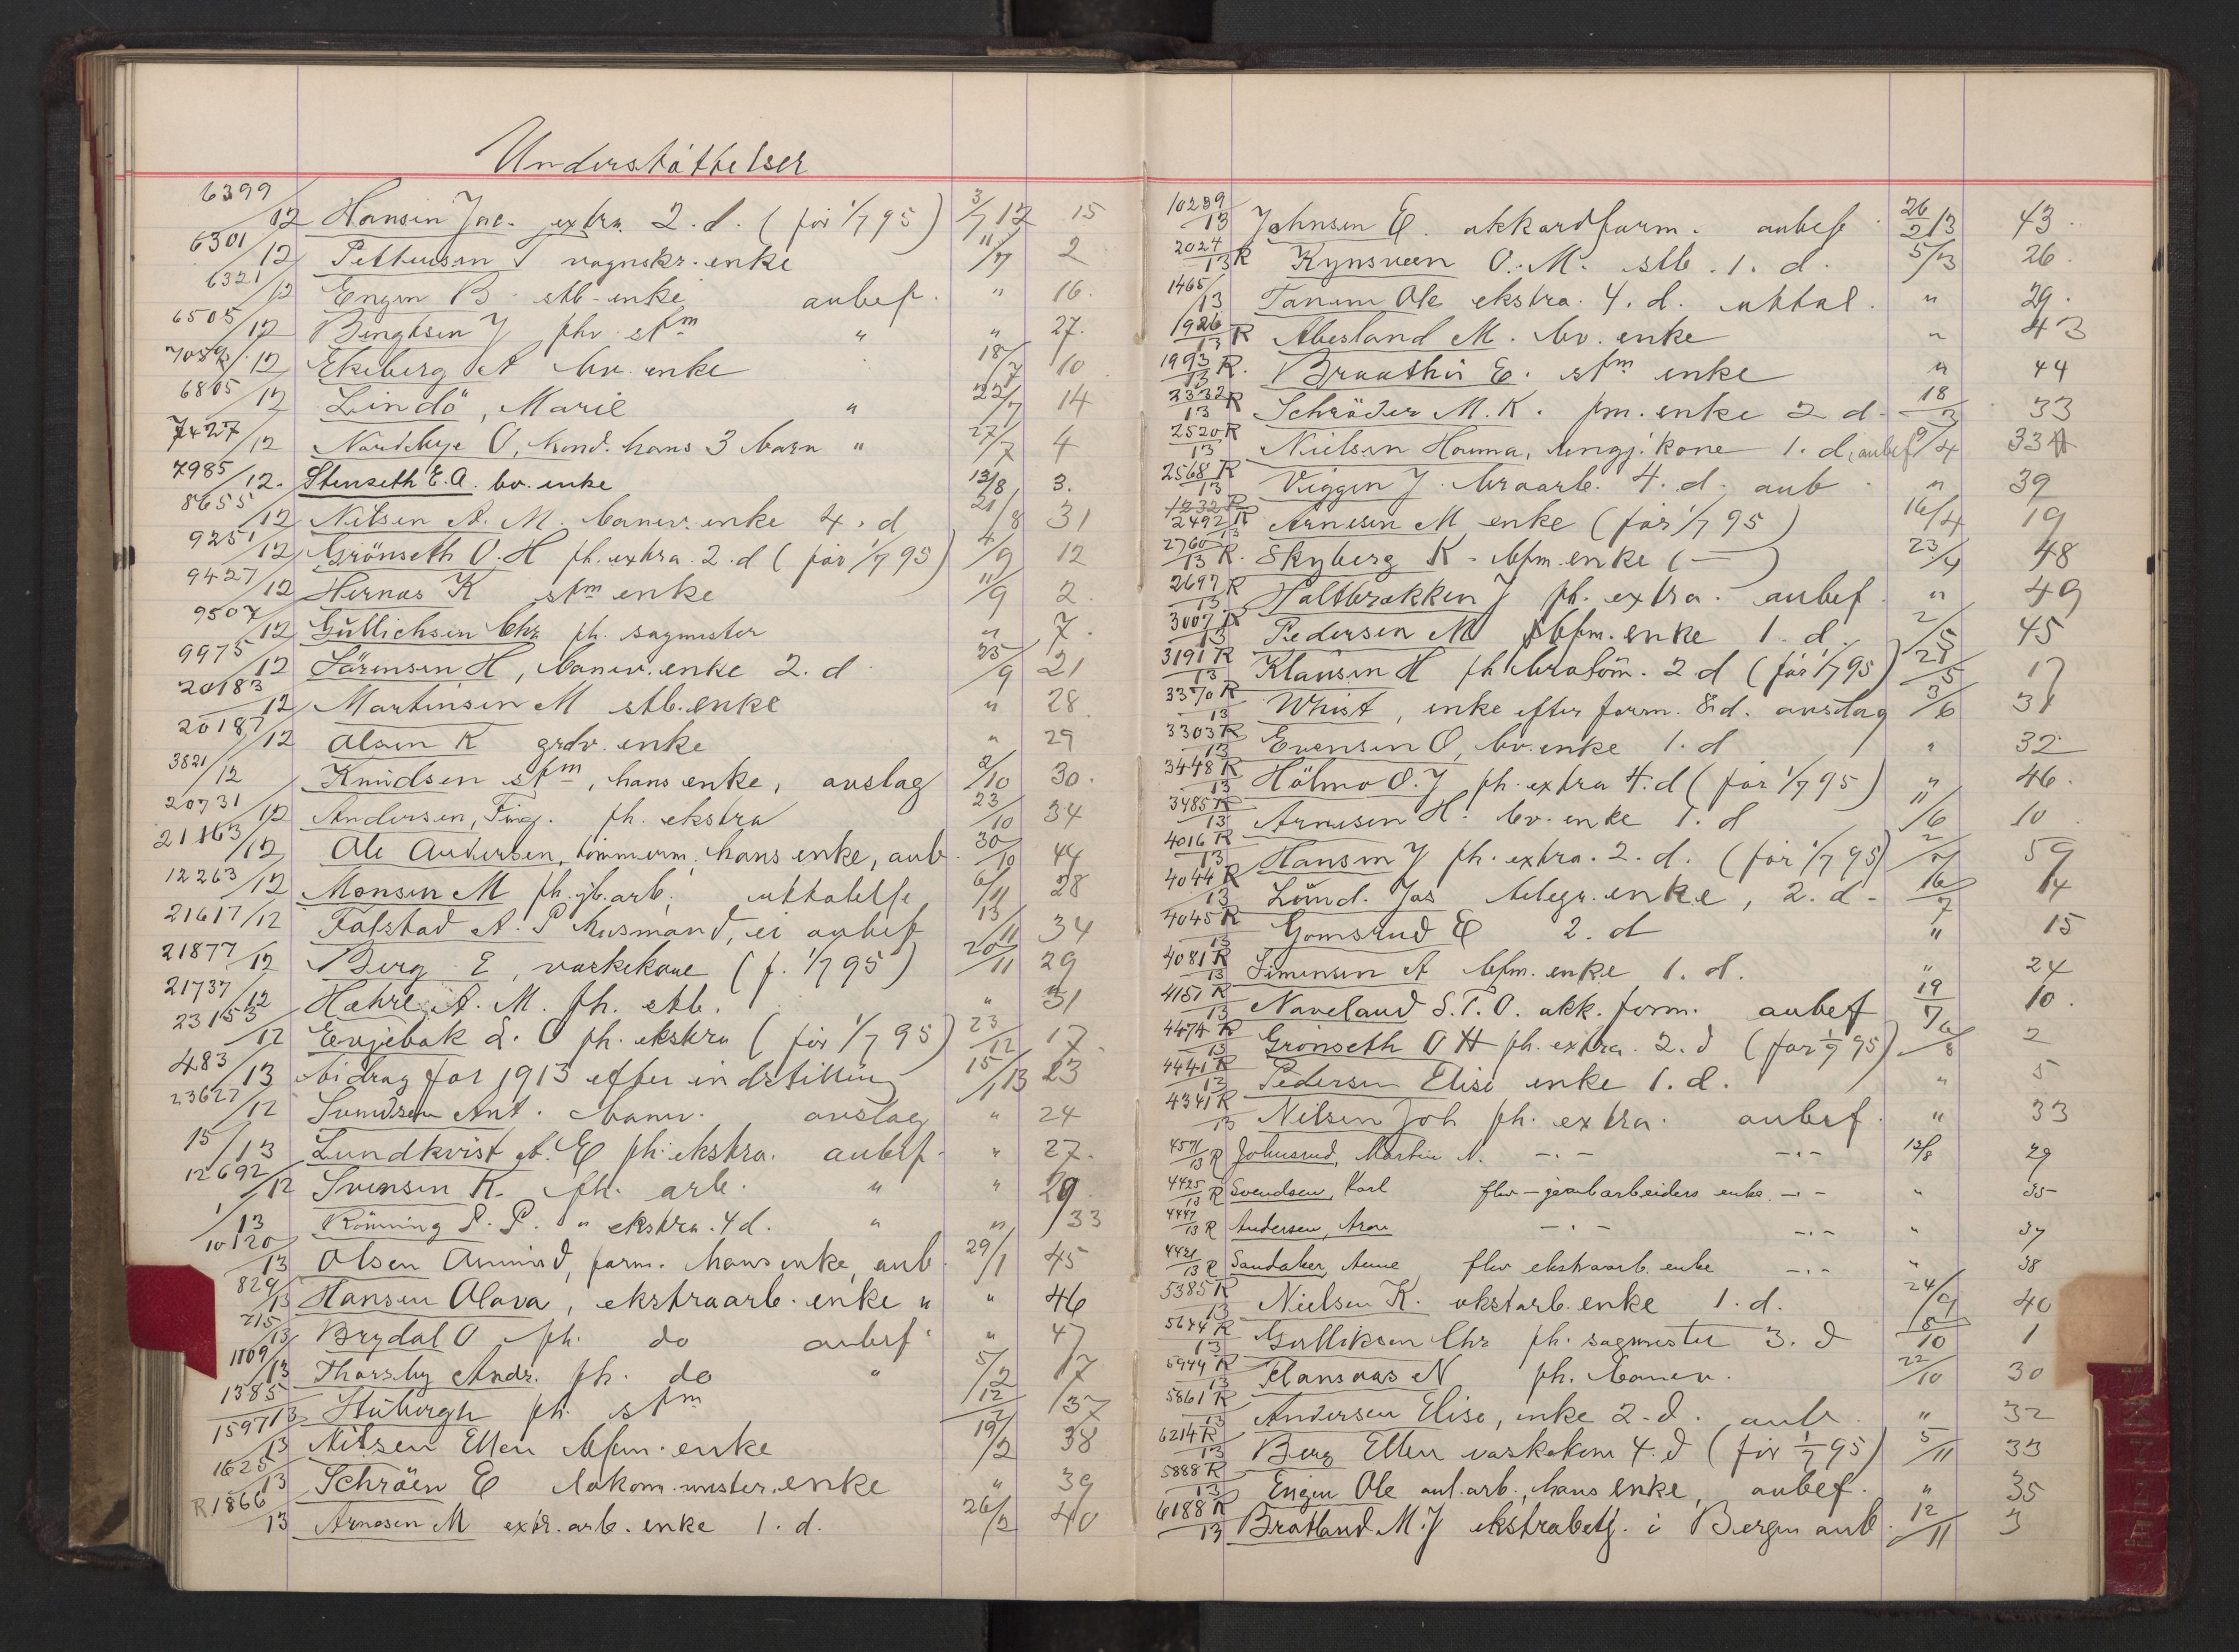 Understøttelser
6399/12 Hansen Jac. extra 2. d. (før 1/7 95) 3/7 12 15
6301/12 Pettersen T vognskr. enke 11/7 2
6321/12 Engen B stb-enke anbef. " 16.
6505/12 Bengtsen J fhv. stfm " " 27.
7052/12 Ekeberg A bv. enke 18/7 10
6805/12 Lindö, Marie " 22/7 14
7427/12 Nordbye O, hans 3 barn " 27/7 4
7985/12. Stenseth E. A. bv. enke 13/8 3.
8655/12 Nilsen A. M. banev. enke 4. d 21/8 31
9251/12 Grönseth O. H fh. extra 2. d (før 1/7 95) 4/9 12
9427/12 Hernas K stfm enke 11/9 2.
9507/12 Gullichsen Chr fh. sagmester " 7.
9975/12 Sörensen H, banev. enke 2. d 25/9 21
20183/12 Martinsen M stb. enke " 28
20187/12 Olsen K grdv. enke " 29
3821/12 Knudsen stfm, hans enke, avslag 2/10 30.
20731/12 Andersen, Fing. fh. ekstra 23/10 34
21163/12 Ole Andersen, tömmerm. hans enke, anb. 30/10 44
12263/12 Monsen M fh. jb. arb. uttalelse 6/11 28
21617/12 Falstad A. P husmand, ei anbef 13/11 34
21877/12 Berg E, vaskekone (f. 1/7 95) 20/11 29
21737/12 Hæhre A. M. fh. stb. " 31
23153/12 Evjebak L. O fh. ekstra (før 1/7 95) 23/12 17
483/13 bidrag for 1913 efter indstilling 15/1 13 23
23627/12 Svendsen Ant. banev. avslag " 24
15/13 Lundkvist A. E fh. ekstra. anbef. " 27.
12692/12 Svensen K. fh. arb. " " 29
1/13 Rönning P. P. " ekstra. 4 d. " " 33
10120/13 Olsen Amund, form. hans enke, anb. 29/1 45
829/13 Hansen Olava, ekstraarb. enke " " 46
215/13 Brydal O fh. do anbef " 47
1109/13 Thorsby Andr. fh. do " 5/2 17
1385/13 Stüborgh fh. stfm 12/2 37
1597/13 Nilsen Ellen bfm. enke 19/2 38
1625/13 Schröen E lokom. mester. enke " 39
R 1866/13 Arnesen M extr. arb. enke 1. d. 26/2 40
10239/13 Johnsen E. akkordform. anbef. 26/2 13 43.
2024/13 R Kynsveen O. M. stb. 1. d. 5/3 26.
1465/13 Tanem Ole ekstra. 4. d. uttal. " 29.
1926/13 R Abesland M. bv. enke " 43
1993/13 R. Braathen E. stfm enke " 44
2332/13 R Schröder M. K. fm. enke 2 d. 18/3 33
2520/13 R Nielsen Hanna, rengj. kone 1. d. anbef 9/4 33
2568/13 R Viggen J. braarb. 4. d. anb " 39
2492/13 R Arnesen M enke (før 1/7 95) 16/4 19
2760/13 R. Skyberg K. bfm. enke (—) 23/4 48
2697/13 R Holtbrækken J fh. extra. anbef. " 49
3007/13 R Pedersen M bfm. enke 1. d. 2/5 45
3191/13 R Klausen H fh 2 d (før 1/7 95) 21/5 17
3370/13 R Whist, enke efter form. avslag 3/6 31
3303/13 R Evensen O, bv. enke 1. d " 32
3448/13 R Hölmo O. J fh. extra 4. d (før 1/7 95) " 46.
3485/13 R Arnesen H. bv. enke 1. d 11/6 10.
4016/13 R Hansen J fh. extra. 2. d. (før 1/7 95) 2/7 59
4044/13 R Lund. Jos telegr. enke, 2. d. 16/7 14
4045/13 R Gomsrud E 2. d " 15
4081/13 R Simensen A bfm. enke 1. d. " 24
4151/13 R Naveland S. T. O. akk. form. anbef 19/7 10.
4474/13 R Grönseth O H fh. extra. 2. d (før 1/7 95) 6/8 2
4441/13 R Pedersen Elise enke 1. d. " 5
4341/13 R Nilsen Joh fh. extra. anbef. " 33
4571/13 R Johnsrud, Martin N. -.- -.- 13/8 29
4425/13 R Svendsen, Karl fhv - jernbarbeiders enke -.- " 35
4447/13 R Andersen, Aron -.- -.- " 37
4421/13 R Sandaker, Anne fhv ekstraarb. enke -.- " 38
5385/13 R Nielsen K. ekstarb. enke 1. d. 24/9 40
5674/13 R Gulliksen Chr fh. sagmester 3. d 8/10 1
5944/13 R Hansaas N fh. banev. 22/10 30
5861/13 R Andersen Elise, enke 2. d. anb. " 32
6214/13 R Berg Ellen vaskekone 4. d (før 1/7 95) 5/11 33
5888/13 R Engen Ole anl. arb., hans enke, anbef. " 35
6188/13 R Bratland M. J ekstrabetj. i Bergen anb. 12/11 3